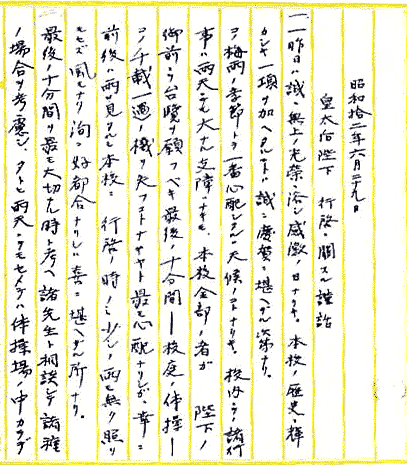 昭和拾二年六月二十九日
皇太后陛下 行啓ニ関スル謹話
一、昨日ハ誠ニ無上ノ光栄ニ浴シ感激ノ日ナリキ。本校ノ歴史ニ輝
カシキ一項ヲ加ヘタルコトハ誠ニ慶賀ニ堪ヘザル次第ナリ。
コノ梅雨ノ季節トテ一番心配シタルハ天候ノコトナリキ。校内ニテノ諸行
事ハ雨天ニテモ大シタ支障ハナキモ、本校全部ノ者ガ 陛下ノ
御前ニテ台覧ヲ願フベキ最後ノ十分間ー校庭ノ体操ー
コノ千載一遇ノ機ヲ失フコトナキヤト最モ心配ナリシガ、幸ニ
前後ニ雨ヲ見タルモ本校ニ 行啓ノ時ノミ少シノ雨モ無ク照リ
モセズ風モナク洵ニ好都合ナリシハ喜ニ堪ヘザル所ナリ。
最後ノ十分間ヲ最モ大切ナ時ト考ヘ諸先生ト相談シテ諸種
ノ場合ヲ考慮シ、タトヒ雨天ニテモセメテハ体操場ノ中カラデ